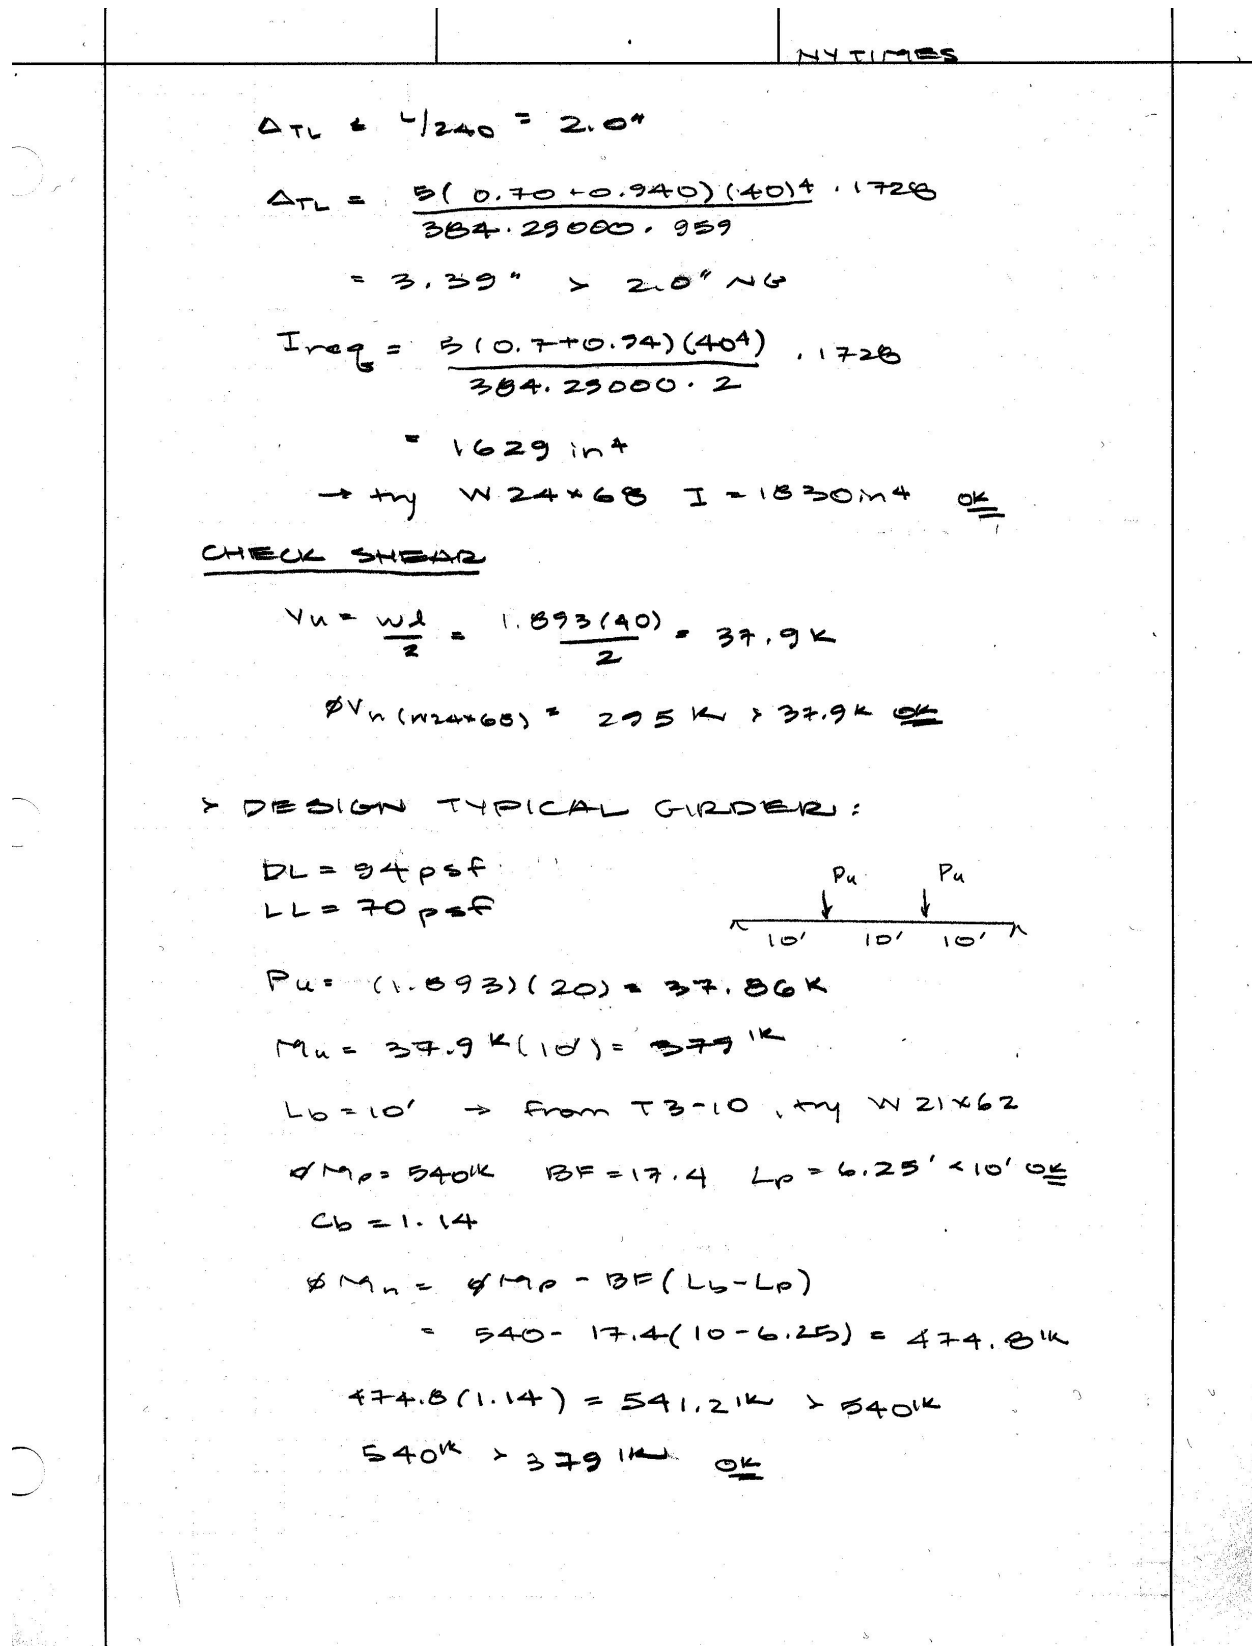 NY TIMES
ΔTL ≤ L/240 = 2.0"
ΔTL = 5(0.70+0.940)(40)4 · 1728
384·29000·959
= 3.39" > 2.0" NG
Ireq = 5(0.7+0.94)(404) · 1728
384·29000·2
= 1629 in4
→ try W24×68 I = 1830in4 OK
CHECK SHEAR
Vu = wl/2 = 1.893(40)/2 = 37.9K
ØVn (W24×68) = 295 K > 37.9K OK
> DESIGN TYPICAL GIRDER:
DL = 94 psf
LL = 70 psf
Pu Pu
10' 10' 10'
Pu = (1.893)(20) = 37.86K
Mu = 37.9K(10') = 379 'K
Lb = 10' → from T3-10, try W21×62
ØMp = 540'K BF = 17.4 Lp = 6.25' < 10' OK
Cb = 1.14
ØMn = ØMp - BF(Lb-Lp)
= 540 - 17.4(10-6.25) = 474.8'K
474.8(1.14) = 541.2'K > 540'K
540'K > 379'K OK